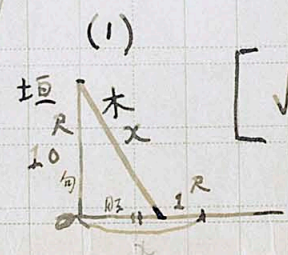 (1)
垣
木
x
尺
10
句
股
1尺
x